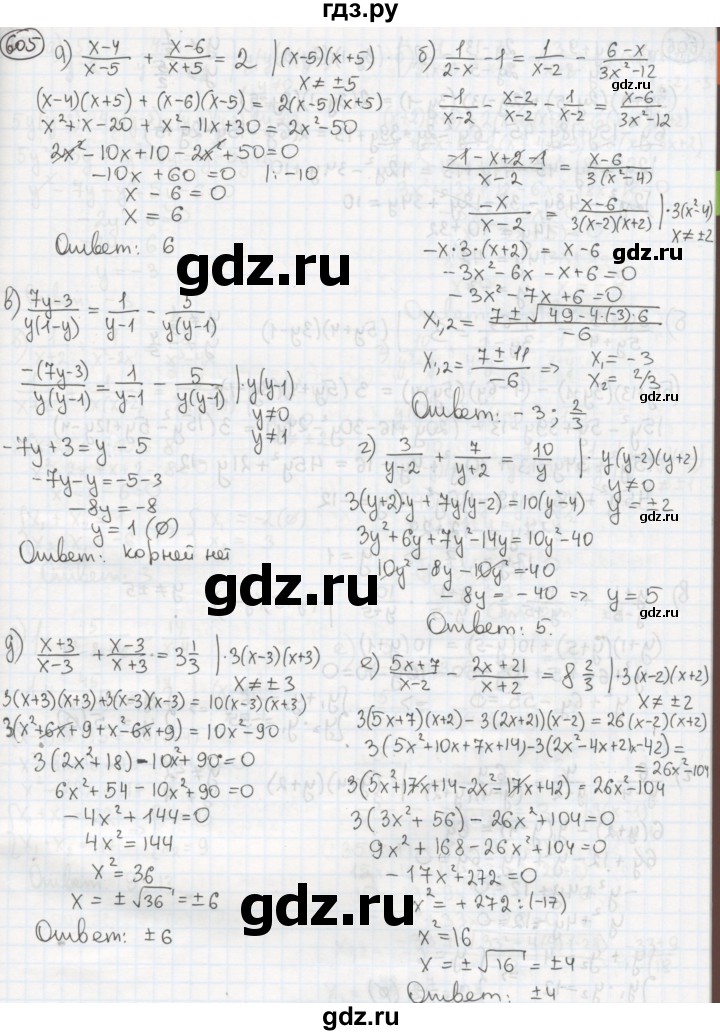 гдз.ру
605
а) (x-4)/(x-5) + (x-6)/(x+5) = 2 |(x-5)(x+5)
x ≠ ±5
(x-4)(x+5) + (x-6)(x-5) = 2(x-5)(x+5)
x² + x - 20 + x² - 11x + 30 = 2x² - 50
2x² - 10x + 10 - 2x² + 50 = 0
-10x + 60 = 0 |: -10
x - 6 = 0
x = 6
Ответ: 6
б) 1/(2-x) - 1 = 1/(x-2) - (6-x)/(3x²-12)
-1/(x-2) - (x-2)/(x-2) - 1/(x-2) = (x-6)/(3x²-12)
(-1-x+2-1)/(x-2) = (x-6)/(3(x²-4))
-x/(x-2) = (x-6)/(3(x-2)(x+2)) |·3(x²-4)
x ≠ ±2
-x·3·(x+2) = x-6
-3x² - 6x - x + 6 = 0
-3x² - 7x + 6 = 0
x1,2 = (7 ± √(49-4·(-3)·6))/(-6)
x1,2 = (7 ± 11)/(-6) => x₁ = -3
x₂ = 2/3
Ответ: -3; 2/3
в) (7y-3)/(y(1-y)) = 1/(y-1) - 5/(y(y-1))
-(7y-3)/(y(y-1)) = 1/(y-1) - 5/(y(y-1)) |·y(y-1)
y≠0
y≠1
-7y+3 = y - 5
-7y - y = -5-3
-8y = -8
y = 1 (∅)
Ответ: корней нет
г) 3/(y-2) + 7/(y+2) = 10/y |· y(y-2)(y+2)
y≠0
y = ±2
3(y+2)·y + 7y(y-2) = 10(y²-4)
3y² + 6y + 7y² - 14y = 10y² - 40
10y² - 8y - 10y² = -40
-8y = -40 => y = 5
Ответ: 5.
д) (x+3)/(x-3) + (x-3)/(x+3) = 3 1/3 |·3(x-3)(x+3)
x ≠ ±3
3(x+3)(x+3)+3(x-3)(x-3) = 10(x-3)(x+3)
3(x²+6x+9+x²-6x+9) = 10x²-90
3(2x²+18) - 10x² + 90 = 0
6x² + 54 - 10x² + 90 = 0
-4x² + 144 = 0
4x² = 144
x² = 36
x = ±√36 = ±6
Ответ: ±6
е) (5x+7)/(x-2) - (2x+21)/(x+2) = 8 2/3 |·3(x-2)(x+2)
x ≠ ±2
3(5x+7)(x+2) - 3(2x+21)(x-2) = 26(x-2)(x+2)
3(5x²+10x+7x+14)-3(2x²-4x+21x-42) =
= 26x²-104
3(5x²+17x+14-2x²-17x+42) = 26x²-104
3(3x²+56) - 26x² + 104 = 0
9x² + 168 - 26x² + 104 = 0
-17x² + 272 = 0
x² = +272:(-17)
x² = 16
x = ±√16 = ±4
Ответ: ±4
gdz.ru
gdz.ru
gdz.ru
gdz.ru
gdz.ru
gdz.ru
gdz.ru
gdz.ru